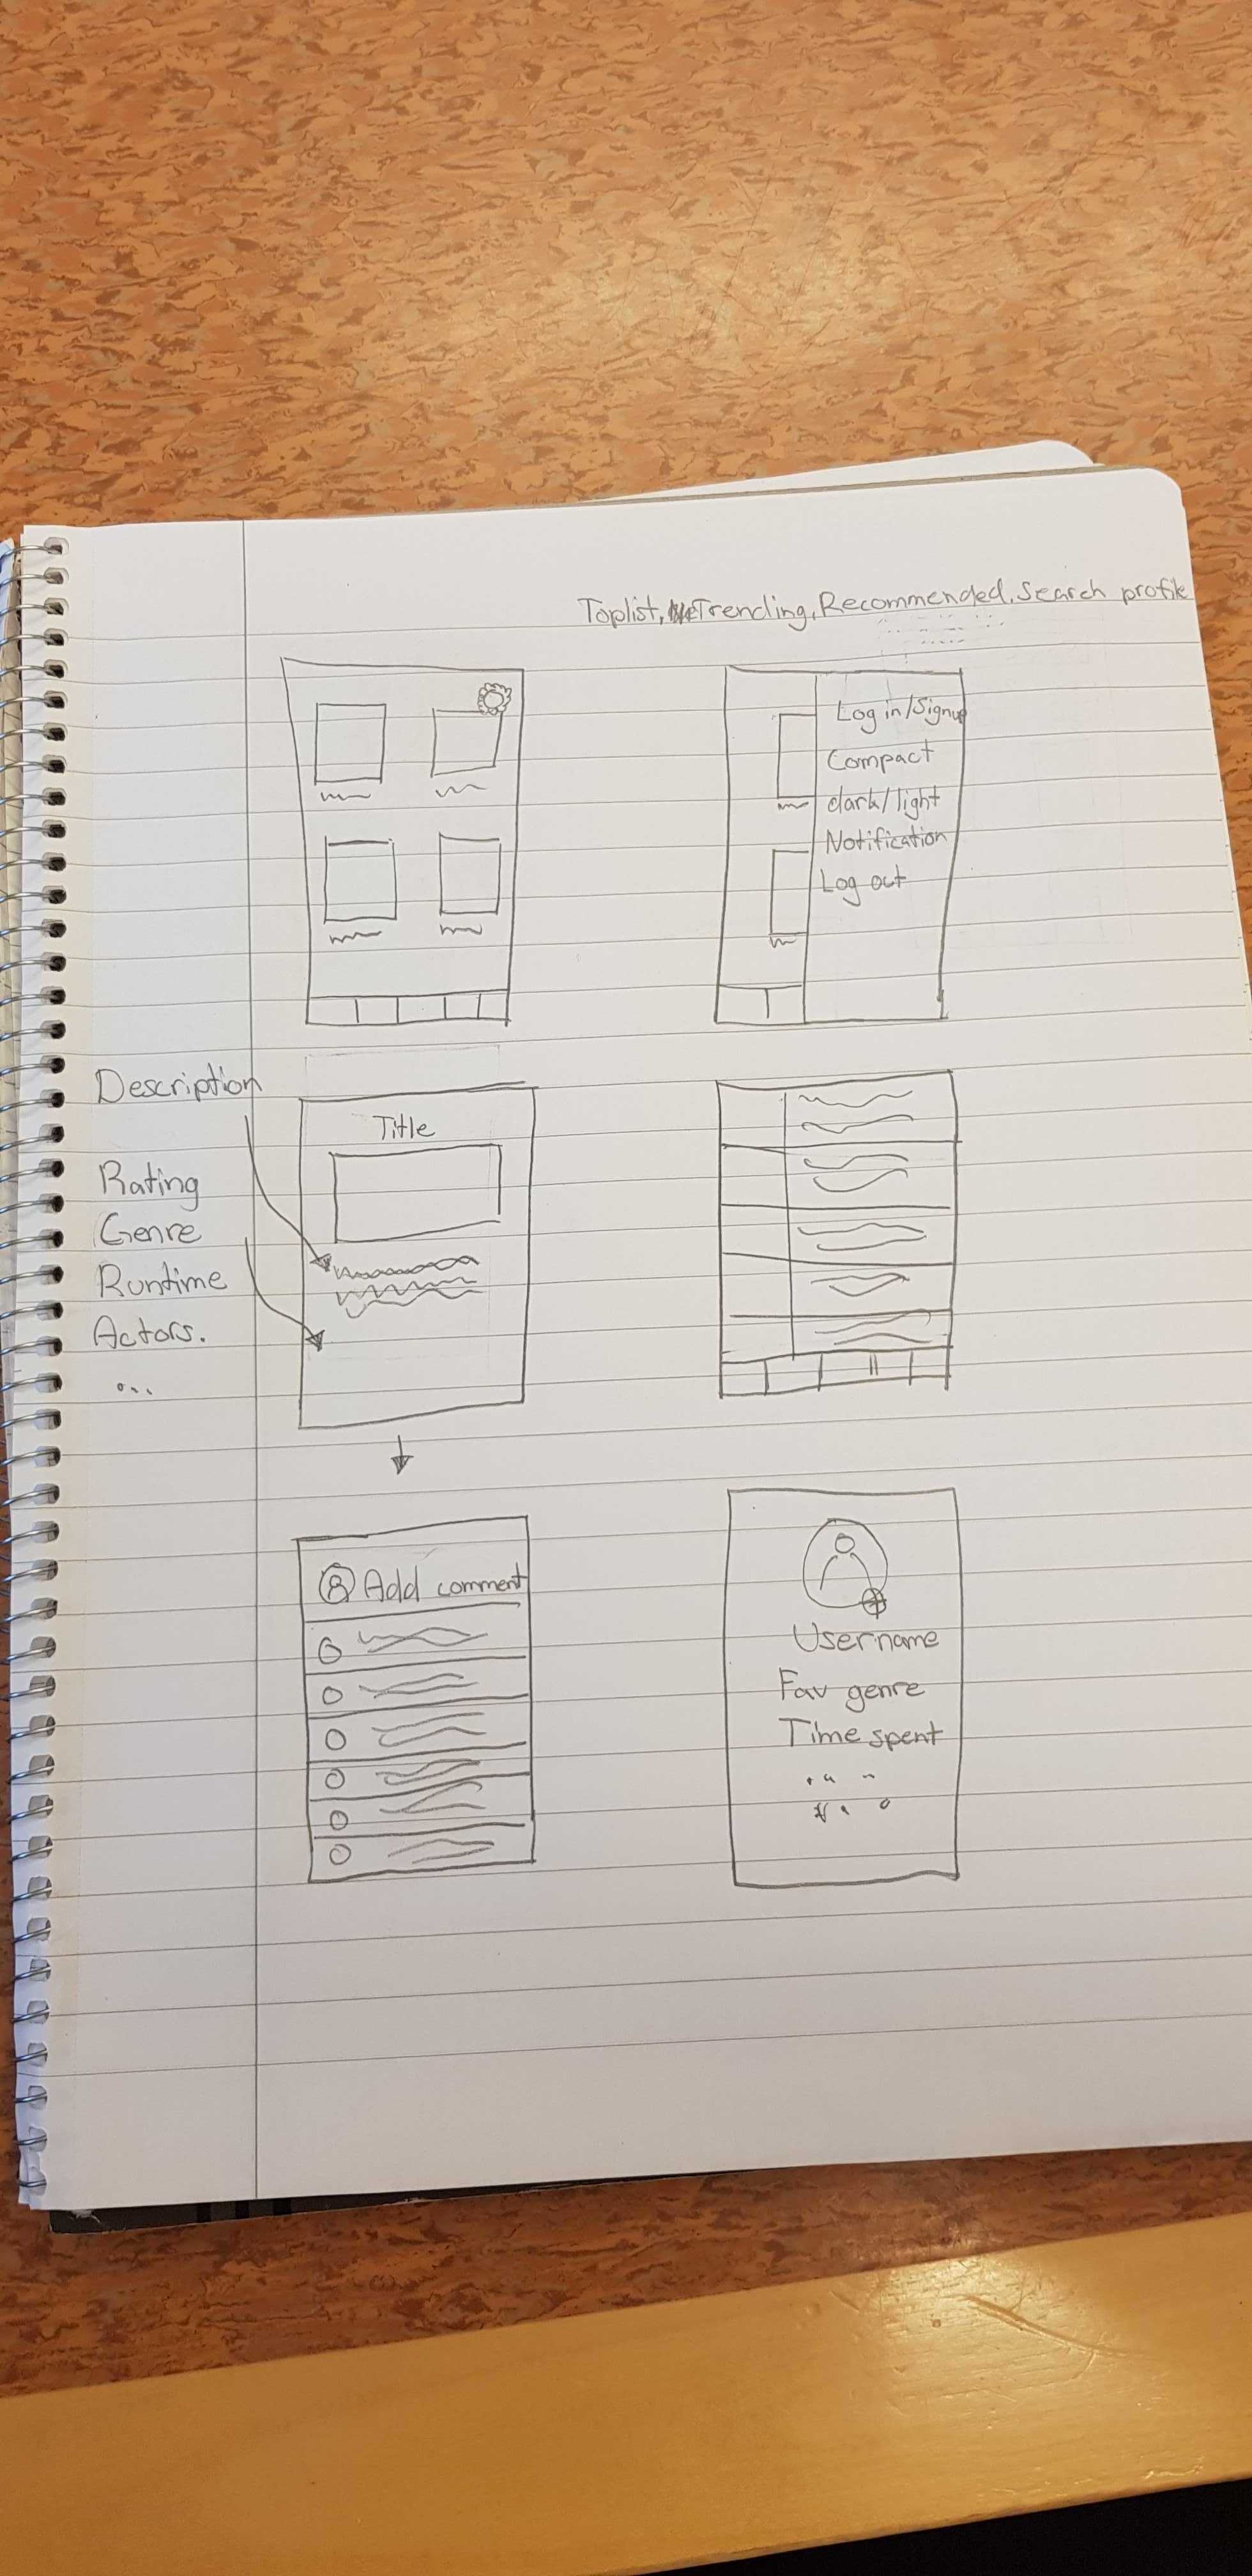 Toplist, Trending, Recommended. Search profile
Log in/Signup
Compact
dark/light
Notification
Log out
Description
Rating
Genre
Runtime
Actors.
...
Title
Add comment
Username
Fav genre
Time spent